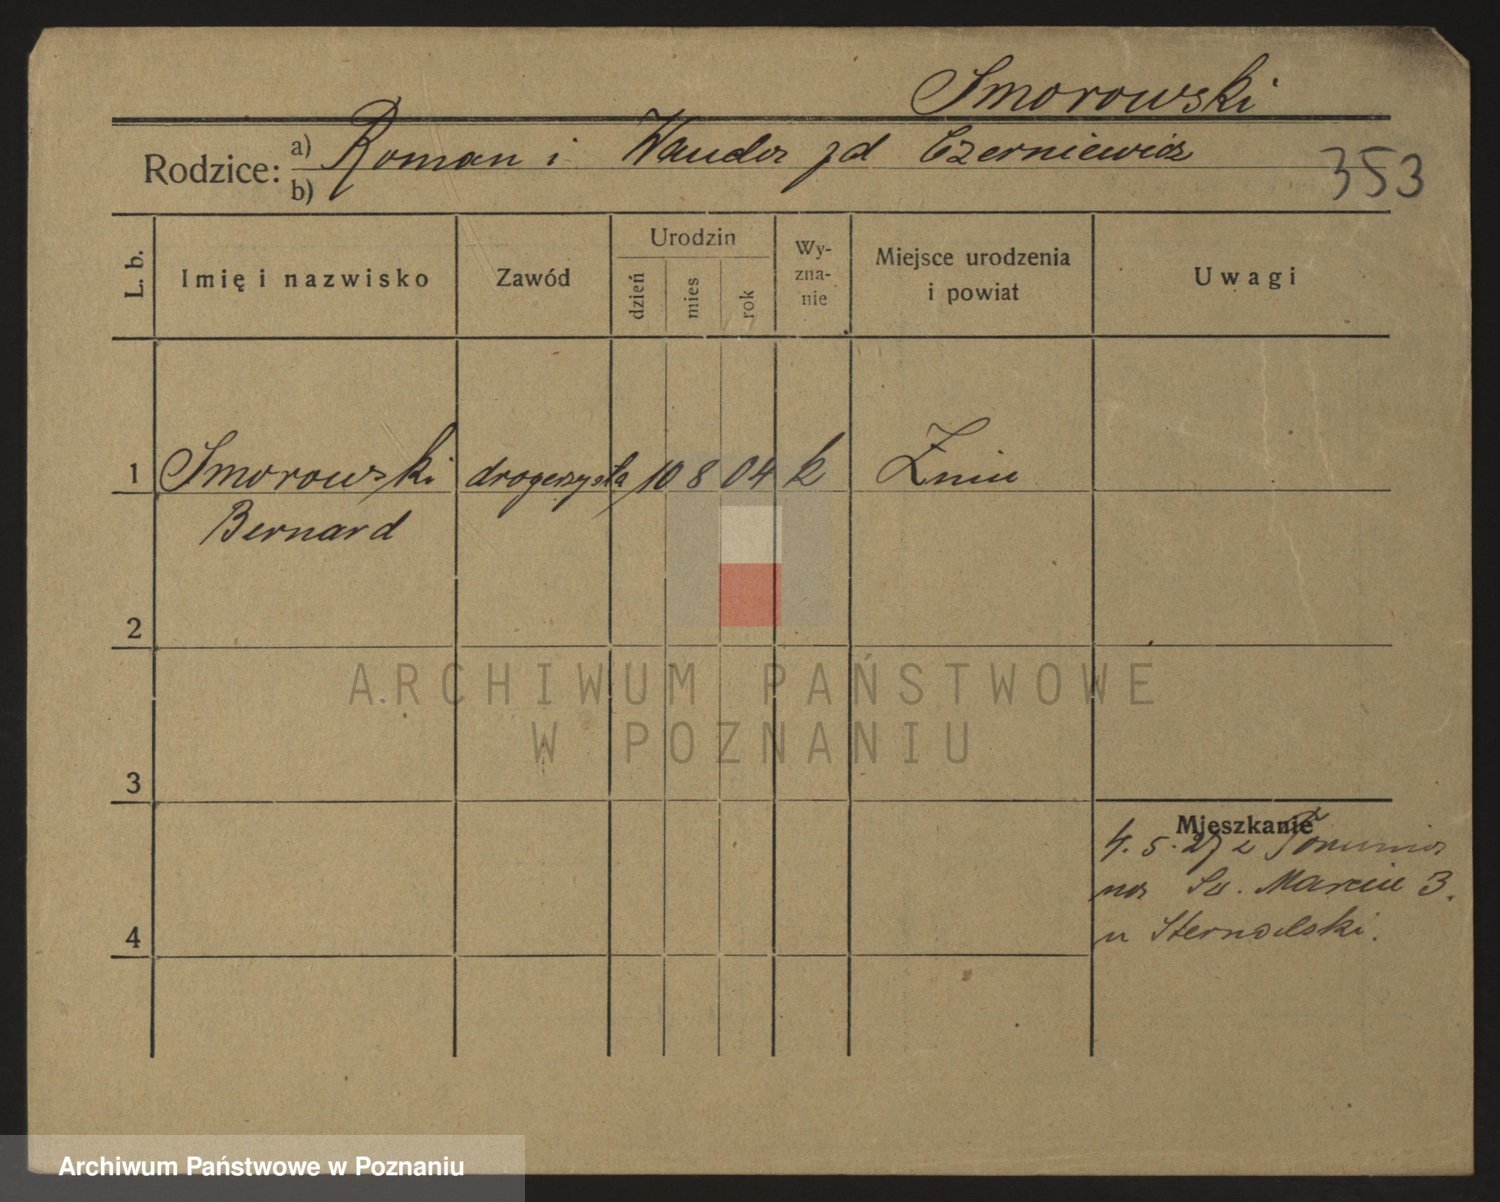 Smorowski
Rodzice: a) Roman i Wanda zd Czerniewicz
b)
353
L. b.
Imię i nazwisko
Zawód
Urodzin
dzień
mies
rok
Wy-
zna-
nie
Miejsce urodzenia
i powiat
Uwagi
1 Smorowski drogerzysta 10 8 04 k Żnin
Bernard
2
3
4
Mieszkanie
4. 5. 27 z Torunia
na Św. Marcin 3.
u
ARCHIWUM PAŃSTWOWE
W POZNANIU
Archiwum Państwowe w Poznaniu